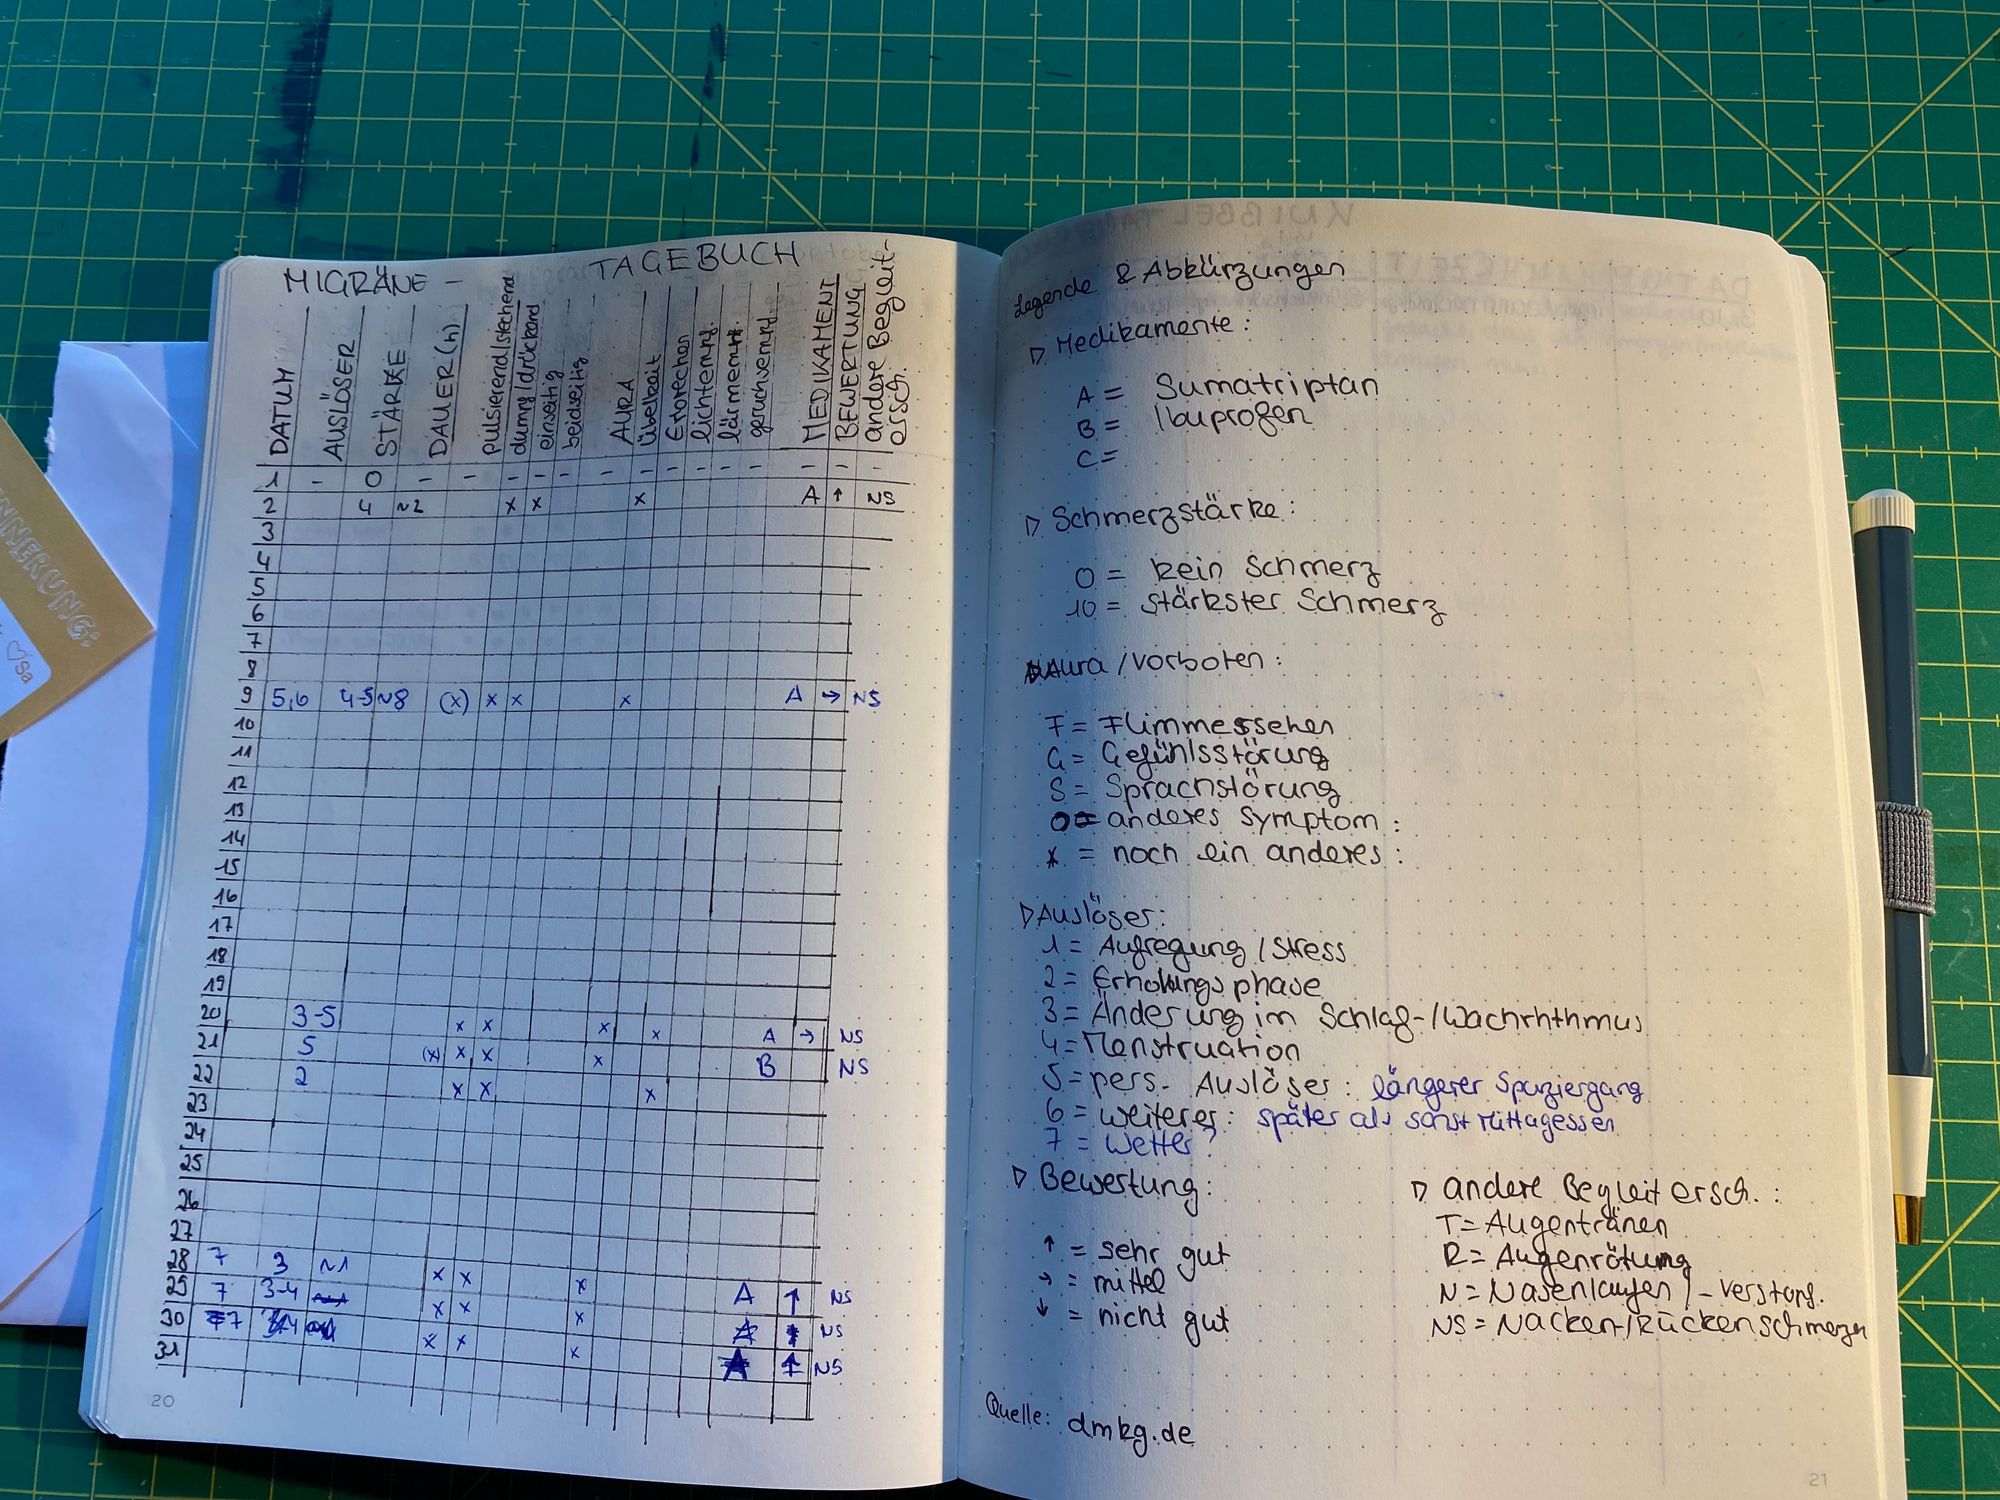 MIGRÄNE - TAGEBUCH
DATUM AUSLÖSER STÄRKE DAUER (h) pulsierend/stechend dumpf/drückend einseitig beidseitig AURA Übelkeit Erbrechen lichtempf. lärmempf. geruchsempf. MEDIKAMENT BEWERTUNG andere Begleit-
ersch.
1 - 0 - - - - - - - - - - - - - - -
2 4 ~2 x x x A ↑ NS
3
4
5
6
7
8
9 5,6 4-5 ~8 (x) x x x A → NS
10
11
12
13
14
15
16
17
18
19
20 3-5 x x x x A → NS
21 5 (x) x x x B NS
22 2 x x x
23
24
25
26
27
28 7 3 ~1 x x x A ↑ NS
29 7 3-4 x x x NS
30 7 x x x ↑ NS
31
20
Legende & Abkürzungen
▷ Medikamente:
A = Sumatriptan
B = Ibuprofen
C =
▷ Schmerzstärke:
0 = kein Schmerz
10 = stärkster Schmerz
Aura / Vorboten:
F = Flimmersehen
G = Gefühlsstörung
S = Sprachstörung
o = anderes Symptom:
* = noch ein anderes:
▷ Auslöser:
1 = Aufregung / Stress
2 = Erholungsphase
3 = Änderung im Schlaf-/Wachrhthmus
4 = Menstruation
5 = pers. Auslöser: längerer Spaziergang
6 = weiterer: später als sonst Mittagessen
7 = Wetter?
▷ Bewertung:
↑ = sehr gut
→ = mittel
↓ = nicht gut
▷ andere Begleitersch.:
T = Augentränen
R = Augenrötung
N = Nasenlaufen / -verstopf.
NS = Nacken-/Rückenschmerzen
Quelle: dmkg.de
21
NNERUNG:
♡Sa